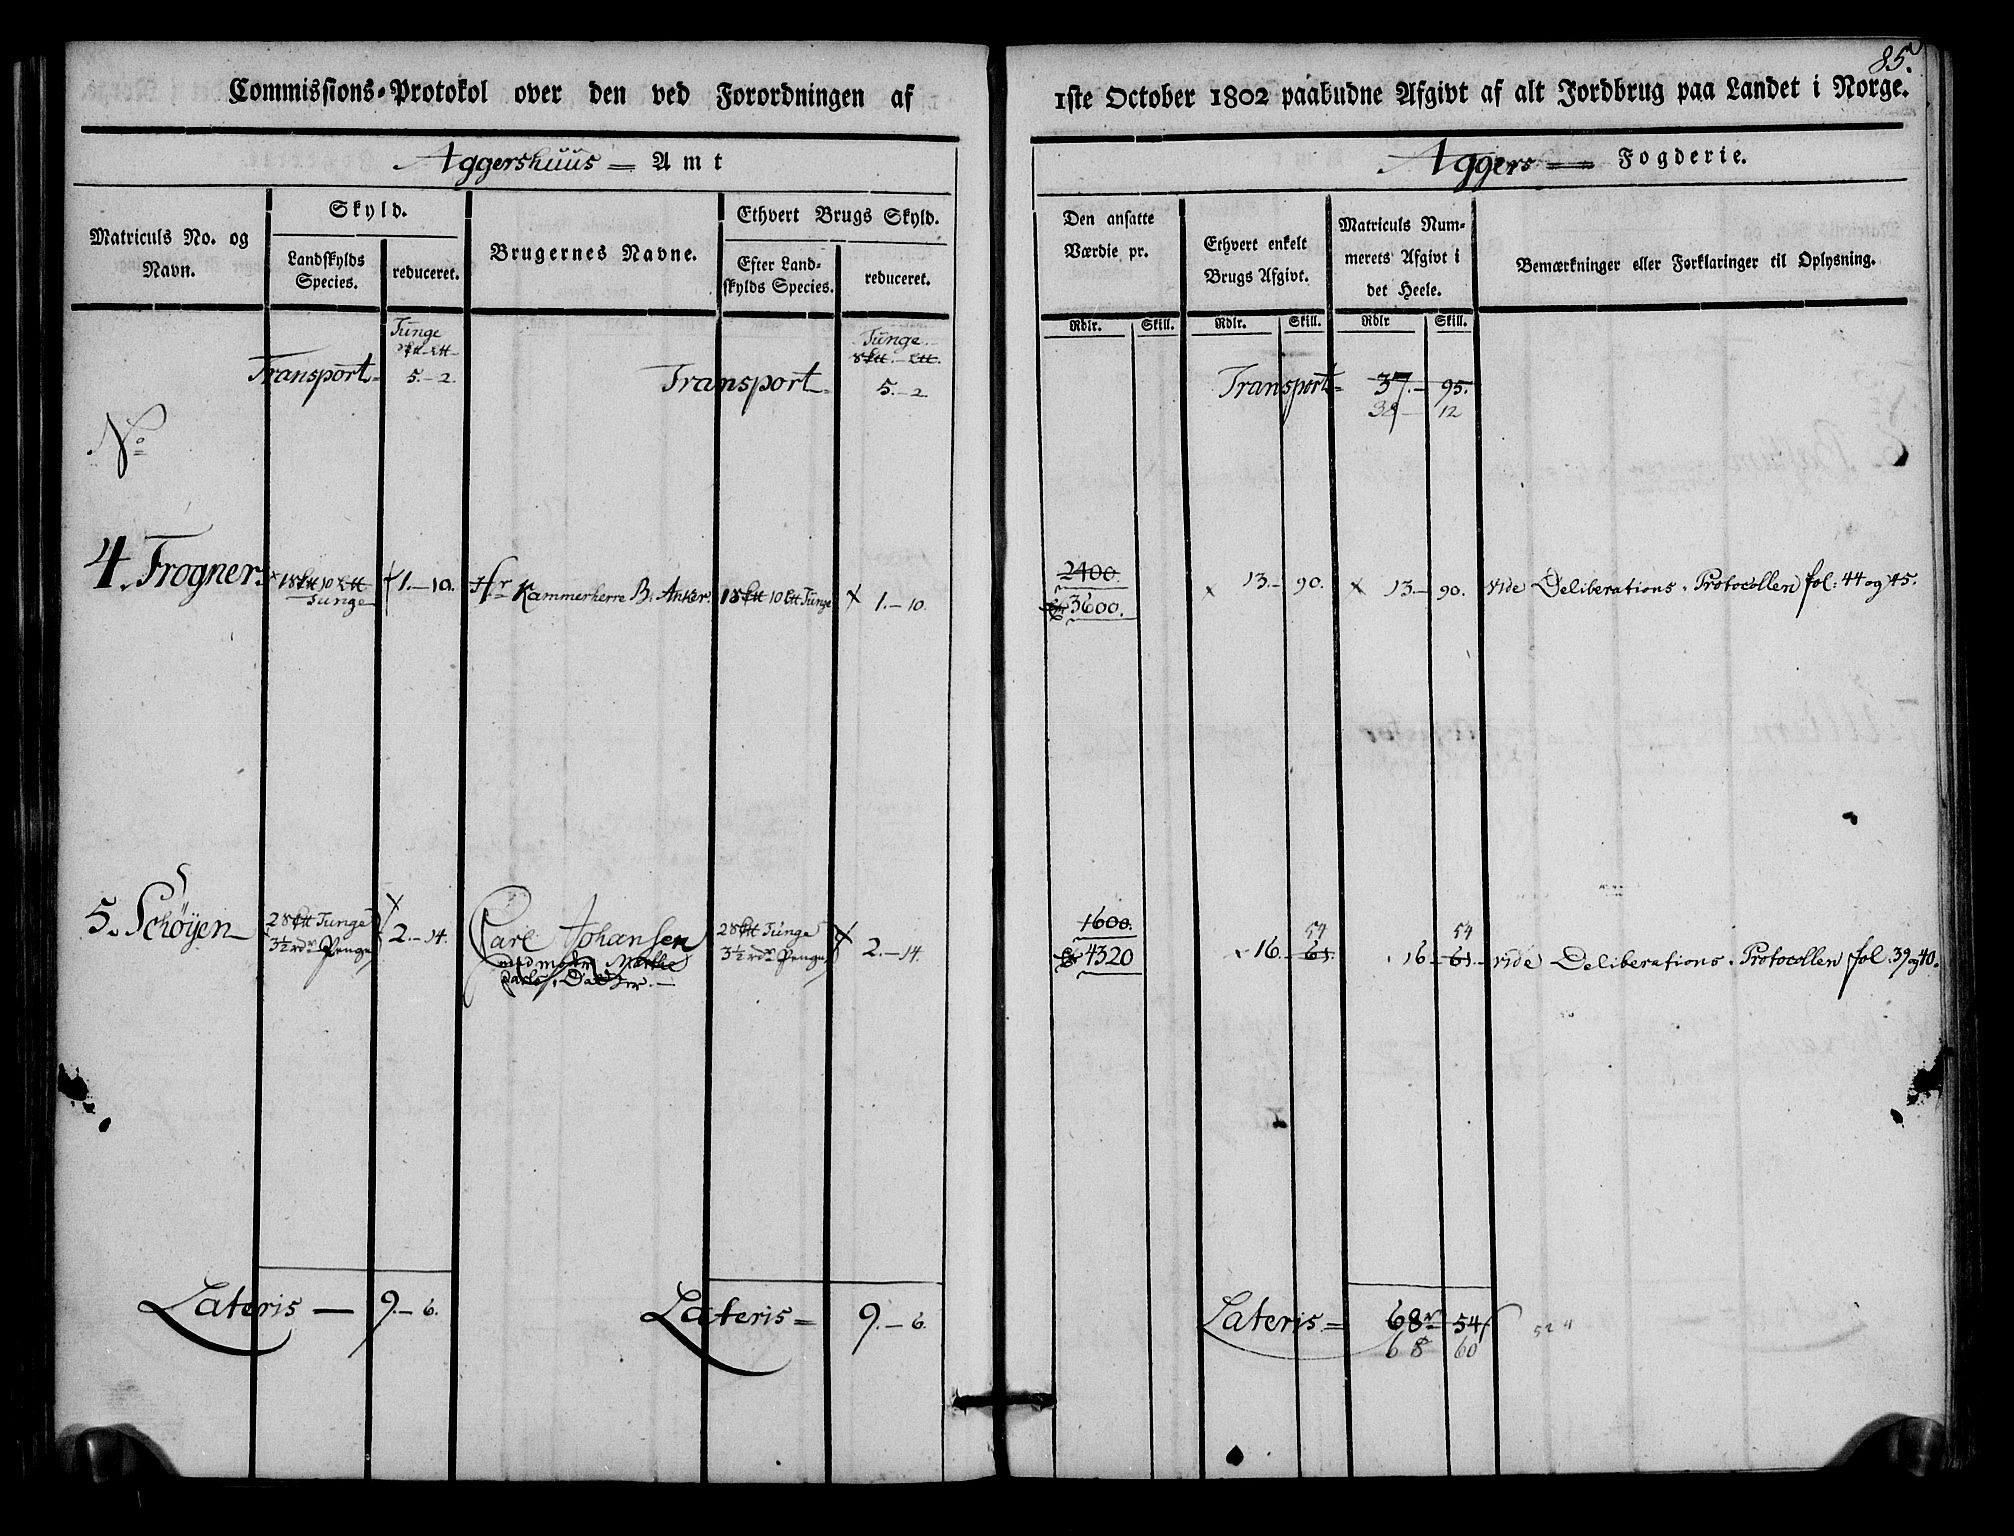 85.
Commissions-Protokol over den ved Forordningen af
1ste October 1802 paabudne Afgivt af alt Jordbrug paa Landet i Norge.
Aggershuus = Amt
Aggers = Fogderie.
Matriculs No. og Navn.
Skyld.
Landskylds Species.
reduceret.
Brugernes Navne.
Ethvert Brugs Skyld.
Efter Land-
skylds Species.
reduceret.
Den ansatte
Værdie pr.
Ethvert enkelt
Brugs Afgivt.
Matriculs Num-
merets Afgivt i
det Heele.
Bemærkninger eller Forklaringer til Oplysning.
Rdlr. Skill. Rdlr. Skill. Rdlr Skill.
Tunge
Tunge.
Transport = 5.-2. Transport = 5.-2.
Transport = 37.- 95.
38 - 12
No
2400.
4. Frogner. 10 Tunge 1.-10. Hr Kammerherre B: Anker. 10 Tunge x 1.-10.
3600. x 13.- 90. x 13.- 90. vide Deliberations-Protocollen fol: 44 og 45.
1600. 54 54
5. Schøyen 2 Tunge 2.-14. Carl Johansen 2 Tunge x 2.-14.
3½ rdr Penge 3½ rdr Penge
4320 16.- 61. 16.- 61.- vide Deliberations-Protocollen fol. 39 og 40.
Lateris — 9.- 6. Lateris = 9.- 6.
Lateris = 68 54
68 60